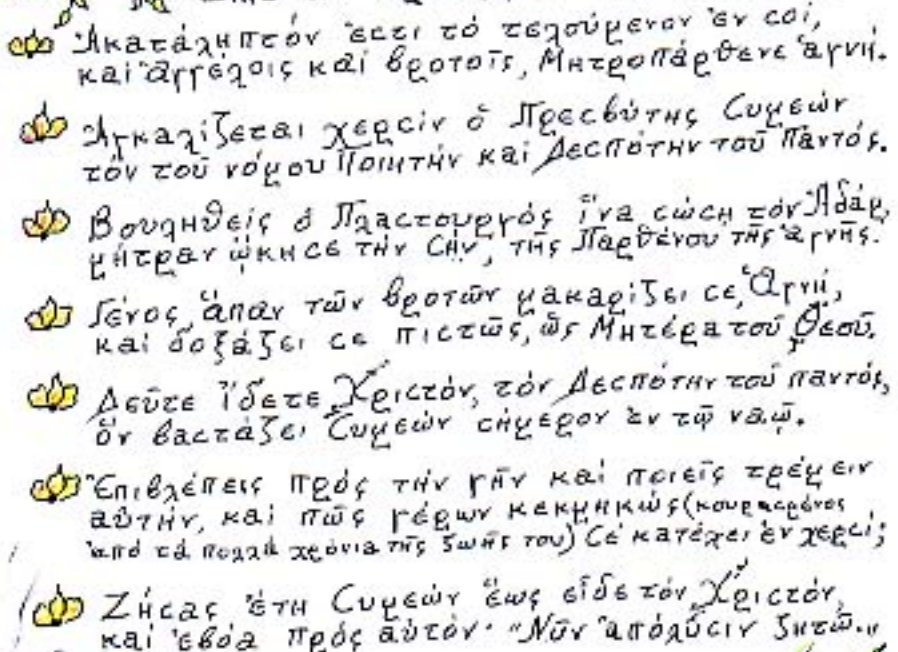 Ἀκατάληπτόν ἐστι τό τελούμενον ἐν σοί,
καί ἀγγέλοις καί βροτοῖς, Μητροπάρθενε ἁγνή.
Ἀγκαλίζεται χερσίν ὁ Πρεσβύτης Συμεών
τόν τοῦ νόμου Ποιητήν καί Δεσπότην τοῦ παντός.
Βουληθείς ὁ Πλαστουργός ἵνα σώσῃ τόν Ἀδάμ,
μήτραν ᾤκησε τήν σήν, τῆς Παρθένου τῆς ἁγνῆς.
Γένος ἅπαν τῶν βροτῶν μακαρίζει σε, Ἁγνή,
καί δοξάζει σε πιστῶς, ὡς Μητέρα τοῦ Θεοῦ.
Δεῦτε ἴδετε Χριστόν, τόν Δεσπότην τοῦ παντός,
ὅν βαστάζει Συμεών σήμερον ἐν τῷ ναῷ.
Ἐπιβλέπεις πρός τήν γῆν καί ποιεῖς τρέμειν
αὐτήν, καί πῶς γέρων κεκμηκώς (κουρασμένος
ἀπό τά πολλά χρόνια τῆς ζωῆς του) Σέ κατέχει ἐν χερσί;
Ζήσας ἔτη Συμεών ἕως εἶδε τόν Χριστόν,
καί ἐβόα πρός αὐτόν· "Νῦν ἀπόλυσιν ζητῶ.."